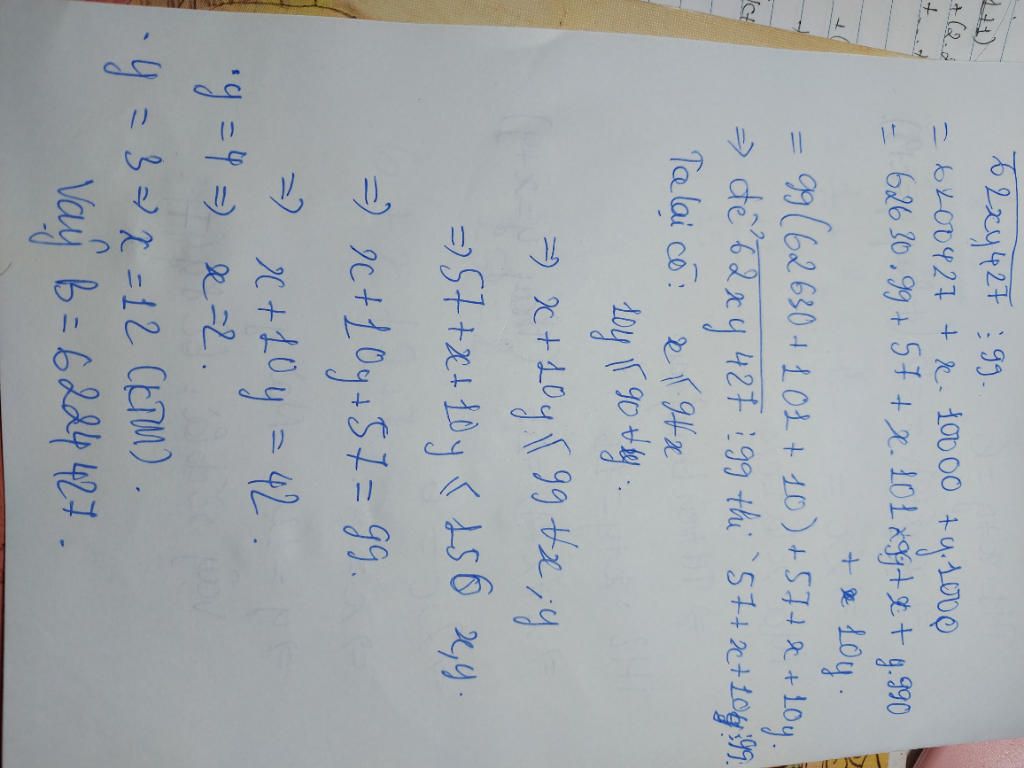 62xy427 ⋮ 99.
= 6200427 + x. 10000 + y.1000
= 62630.99 + 57 + x.101×99 + x + y.990
+ 10y.
= 99(62630 + 101 + 10) + 57 + x + 10y.
⇒ để 62xy427 ⋮ 99 thì 57 + x + 10y ⋮ 99.
Ta lại có: x ≤ 9 ∀x
10y ≤ 90 ∀y.
⇒ x + 10y ≤ 99 ∀x, y
⇒ 57 + x + 10y ≤ 156 x,y.
⇒ x + 10y + 57 = 99.
⇒ x + 10y = 42.
· y = 4 ⇒ x = 2.
· y = 3 ⇒ x = 12 (KTM).
Vậy b = 6224427.